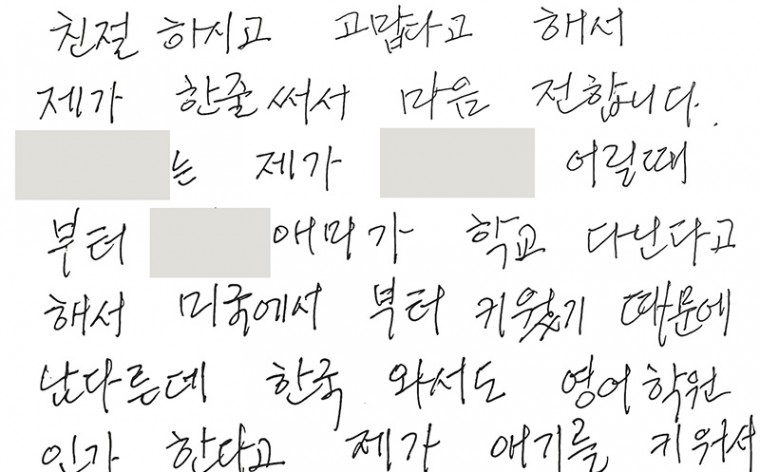 친절 하시고 고맙다고 해서
제가 한줄 써서 마음 전합니다.
는 제가 어릴때
부터 애미가 학교 다닌다고
해서 미국에서 부터 키웠기 때문에
남다른데 한국 와서도 영어 학원
인가 한다고 제가 애기를 키워서